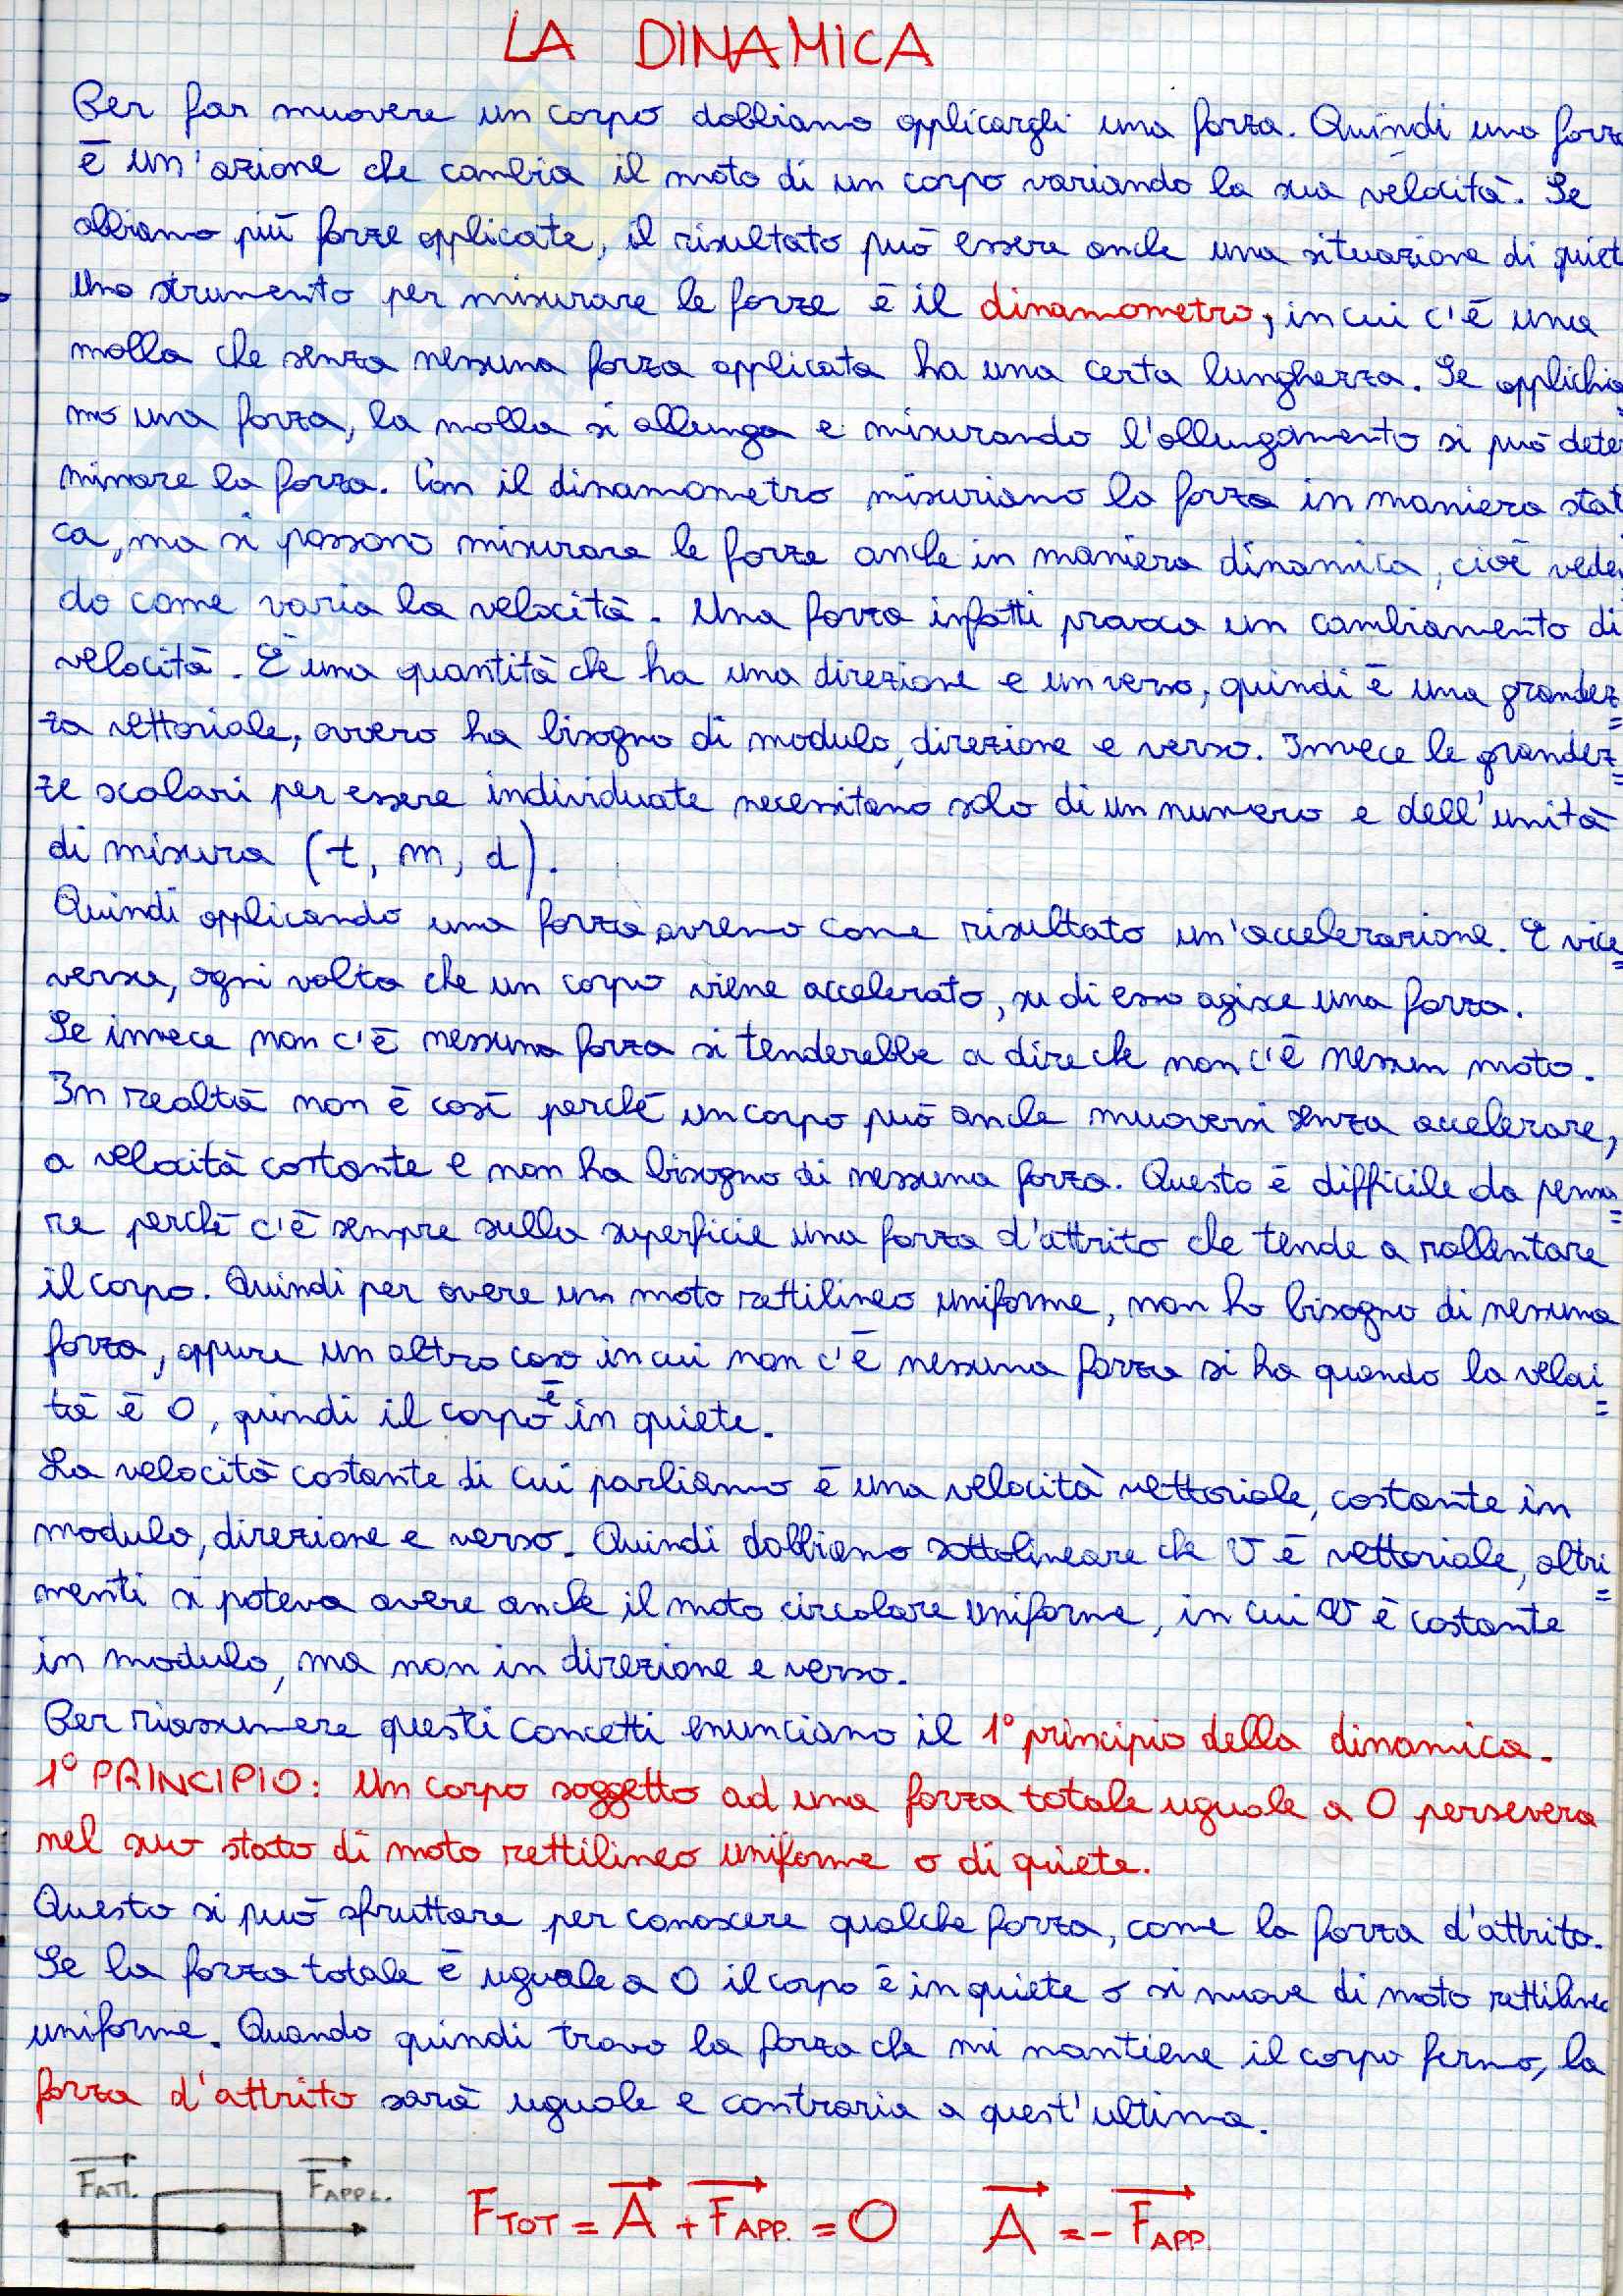 LA DINAMICA
Per far muovere un corpo dobbiamo applicargli una forza. Quindi una forza
è un'azione che cambia il moto di un corpo variando la sua velocità. Se
abbiamo più forze applicate, il risultato può essere anche una situazione di quiet
Uno strumento per misurare le forze è il dinamometro, in cui c'è una
molla che senza nessuna forza applicata ha una certa lunghezza. Se applichia
mo una forza, la molla si allunga e misurando l'allungamento si può deter
minare la forza. Con il dinamometro misuriamo la forza in maniera stati
ca, ma si possono misurare le forze anche in maniera dinamica, cioè veden
do come varia la velocità. Una forza infatti provoca un cambiamento di
velocità. È una quantità che ha una direzione e un verso, quindi è una grandez=
za vettoriale, ovvero ha bisogno di modulo, direzione e verso. Invece le grandez=
ze scalari per essere individuate necessitano solo di un numero e dell'unità
di misura (t, m, d).
Quindi applicando una forza avremo come risultato un'accelerazione. E vice=
versa, ogni volta che un corpo viene accelerato, su di esso agisce una forza.
Se invece non c'è nessuna forza si tenderebbe a dire che non c'è nessun moto.
In realtà non è così perché un corpo può anche muoversi senza accelerare,
a velocità costante e non ha bisogno di nessuna forza. Questo è difficile da pensa=
re perché c'è sempre sulla superficie una forza d'attrito che tende a rallentare
il corpo. Quindi per avere un moto rettilineo uniforme, non ho bisogno di nessuna
forza, oppure un altro caso in cui non c'è nessuna forza si ha quando la veloci=
tà è 0, quindi il corpo è in quiete.
La velocità costante di cui parliamo è una velocità vettoriale, costante in
modulo, direzione e verso. Quindi dobbiamo sottolineare che v è vettoriale, altri=
menti si poteva avere anche il moto circolare uniforme, in cui v è costante
in modulo, ma non in direzione e verso.
Per riassumere questi concetti enunciamo il 1° principio della dinamica.
1° PRINCIPIO: Un corpo soggetto ad una forza totale uguale a 0 persevera
nel suo stato di moto rettilineo uniforme o di quiete.
Questo si può sfruttare per conoscere qualche forza, come la forza d'attrito.
Se la forza totale è uguale a 0 il corpo è in quiete o si muove di moto rettilineo
uniforme. Quando quindi trovo la forza che mi mantiene il corpo fermo, la
forza d'attrito sarà uguale e contraria a quest'ultima.
F ATT. F APPL.
F TOT = A + F APP. = 0 A = - F APP.